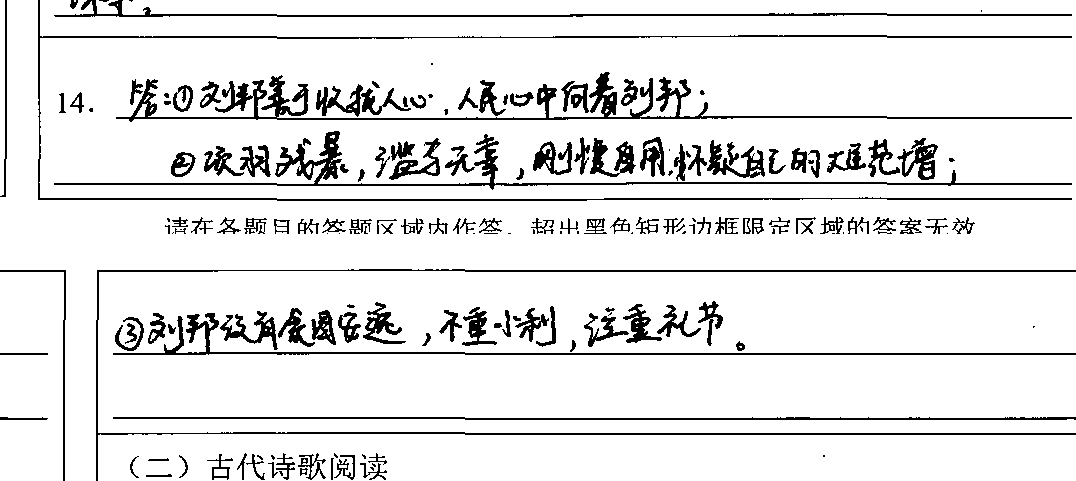 14. 答:①刘邦善于收拢人心,人民心中向着刘邦;
②项羽残暴,滥杀无辜,刚愎自用,怀疑自己的大臣范增;
请在各题目的答题区域内作答,超出黑色矩形边框限定区域的答案无效
③刘邦没有贪图安逸,不重小利,注重礼节。
(二)古代诗歌阅读